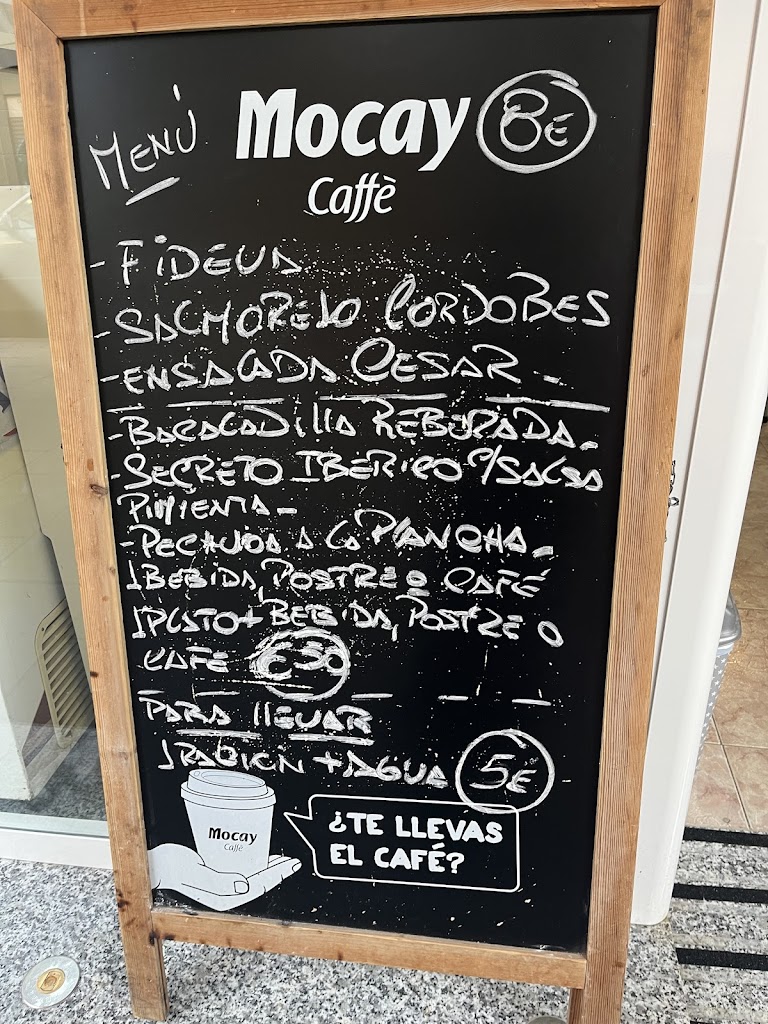 MENÚ
Mocay 8€
Caffè
- FIDEUA
- SALMOREJO CORDOBES
- ENSALADA CESAR -
- BACALADILLA REBOZADA -
- SECRETO IBERICO C/SALSA
PIMIENTA -
- PECHUGA A LA PLANCHA -
1 BEBIDA, POSTRE O CAFÉ
1 PLATO + BEBIDA, POSTRE O
CAFE 6'50
PARA LLEVAR
1 RACION + AGUA 5€
Mocay
Caffè
¿TE LLEVAS
EL CAFÉ?